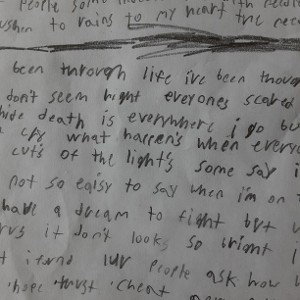 people some
to rains to my heart the
been through life i've been
don't seem hight everyones scared
hide death is everywhere i go but
cry what happen's when every
cut's of the light's some say i
not so eaisy to say when i'm on
have a dream to fight but
it don't looks so bright
luv people ask how
'hope 'trust 'cheat